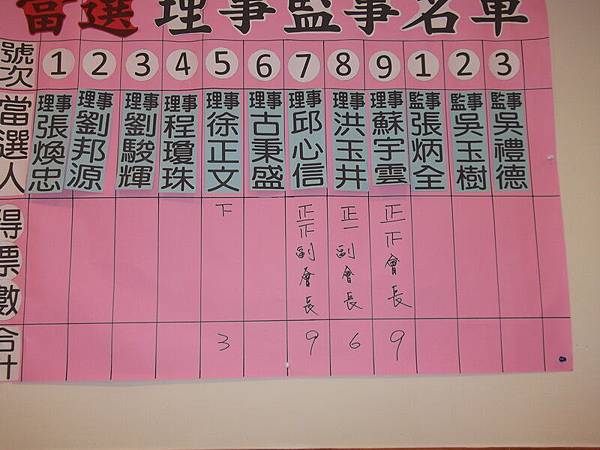 當選理事監事名單
號次 1 2 3 4 5 6 7 8 9 1 2 3
當選人 理事張煥忠 理事劉邦源 理事劉駿輝 理事程瓊珠 理事徐正文 理事古秉盛 理事邱心信 理事洪玉井 理事蘇宇雲 監事張炳全 監事吳玉樹 監事吳禮德
得票數 下 正正副會長 正一副會長 正正會長
合計 3 9 6 9